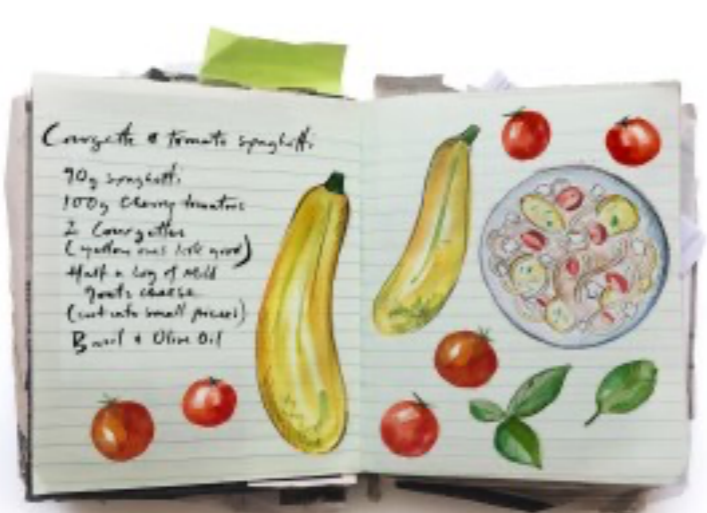 Courgette & tomato spaghetti
90g spaghetti
100g Cherry tomatoes
2 Courgettes
(yellow ones look good)
Half a log of mild
goats cheese
(cut into small pieces)
Basil + Olive Oil